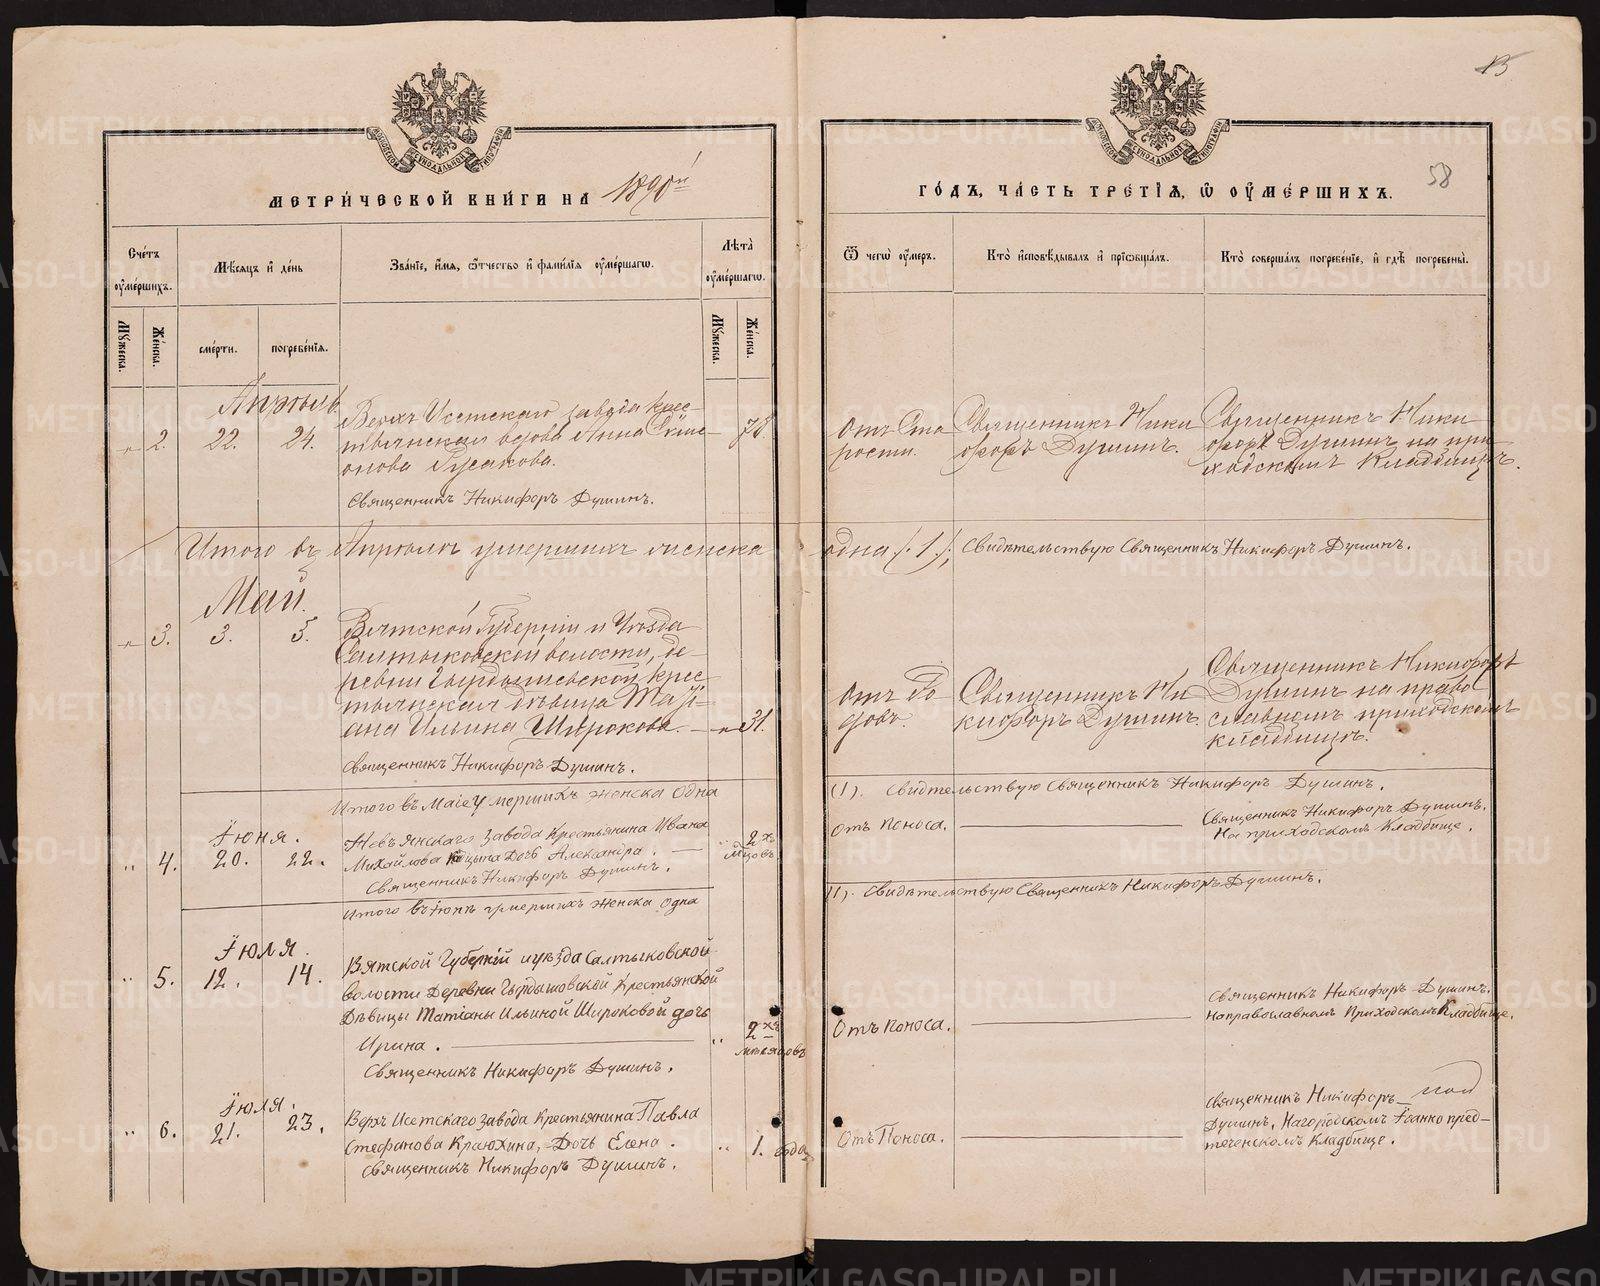 МЕТРИ́ЧЕСКОЙ КНИ́ГИ НА 1890й
Сче́тъ ᲂу҆ме́ршихъ.
Мѣ́сяцъ и҆ де́нь
Зва́нїе, и҆́мя, ѻ҆́тчество и҆ фами́лїя ᲂу҆ме́ршагѡ.
Лѣ́та ᲂу҆ме́ршагѡ.
Му́жеска.
Же́нска.
сме́рти.
погребе́нїя.
Му́жеска.
Же́нска.
Апрѣль.
„ 2. 22. 24.
Верхъ Исетскаго завода крес-
тьянская вдова Анна Симе-
онова Русакова.
78.
Священникъ Никифоръ Душинъ.
Итого въ Апрѣлѣ умершихъ женска
Май.
„ 3. 3. 5.
Вятской Губерніи и Уѣзда
Салтыковской волости, де-
ревни крес-
тьянская дѣвица Таті-
ана Ильина Широкова. — „ 31.
Священникъ Никифоръ Душинъ.
Итого въ Маіе умершихъ женска одна
Іюня.
„ 4. 20. 22.
Невьянскаго завода крестьянина Ивана
Михайлова дочь Александра. — „ 2хъ
мцовъ.
Священникъ Никифоръ Душинъ.
Итого въ Іюнѣ умершихъ женска одна
Іюля.
„ 5. 12. 14.
Вятской Губерніи и уѣзда Салтыковской
волости деревни крестьянской
Дѣвицы Татіаны Ильиной Широковой дочь
Ирина. — „ 2хъ
мѣсяцовъ
Священникъ Никифоръ Душинъ.
Іюля.
„ 6. 21. 23.
Верхъ Исетскаго завода Крестьянина Павла
Стефанова Дочь Елена. „ 1. года
Священникъ Никифоръ Душинъ.
58
ГО́ДЪ, ЧА́СТЬ ТРЕ́ТЇѦ, Ѡ҆ ОУ҆МЕ́РШИХЪ.
Ѿ чегѡ̀ ᲂу҆́меръ.
Кто̀ и҆сповѣ́дывалъ и҆ прїѡбща́лъ.
Кто̀ соверша́лъ погребе́нїе, и҆ гдѣ̀ погребены̀.
Отъ Ста
рости.
Священникъ Ники
форъ Душинъ.
Священникъ Ники
форъ Душинъ на при-
ходскомъ Кладбищѣ.
одна /.1./. Свидѣтельствую Священникъ Никифоръ Душинъ.
Отъ Ро
довъ.
Священникъ Ни
кифоръ Душинъ.
Священникъ Никифоръ
Душинъ на право
славномъ приходскомъ
кладбищѣ.
(1). Свидѣтельствую Священникъ Никифоръ Душинъ.
Отъ поноса. —
Священникъ Никифоръ Душинъ.
На приходскомъ Кладбище.
(1). Свидѣтельствую Священникъ Никифоръ Душинъ.
Отъ поноса. —
Священникъ Никифоръ Душинъ.
На православномъ Приходскомъ Кладбище.
Отъ Поноса. —
Священникъ Никифоръ
Душинъ, На городскомъ Іоанно пред-
теченскомъ Кладбище.
METRIKI.GASO-URAL.RU